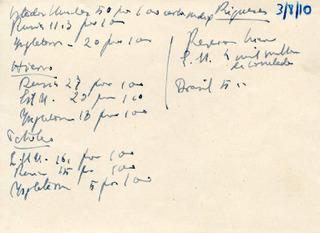 Estados Unidos 50 por 100
3/8/10
Rusia 11.3 por 100
Inglaterra - 20 por 100
Hierro
Rusia 27 por 100
Est U. 23 por 100
Inglaterra 13 por 100
E.U. 16. por 100
Rusia 15 por 100
Inglaterra 5 por 100
Reserva hierro
E. U. 4 mil millon
de toneladas
Brasil 15 "